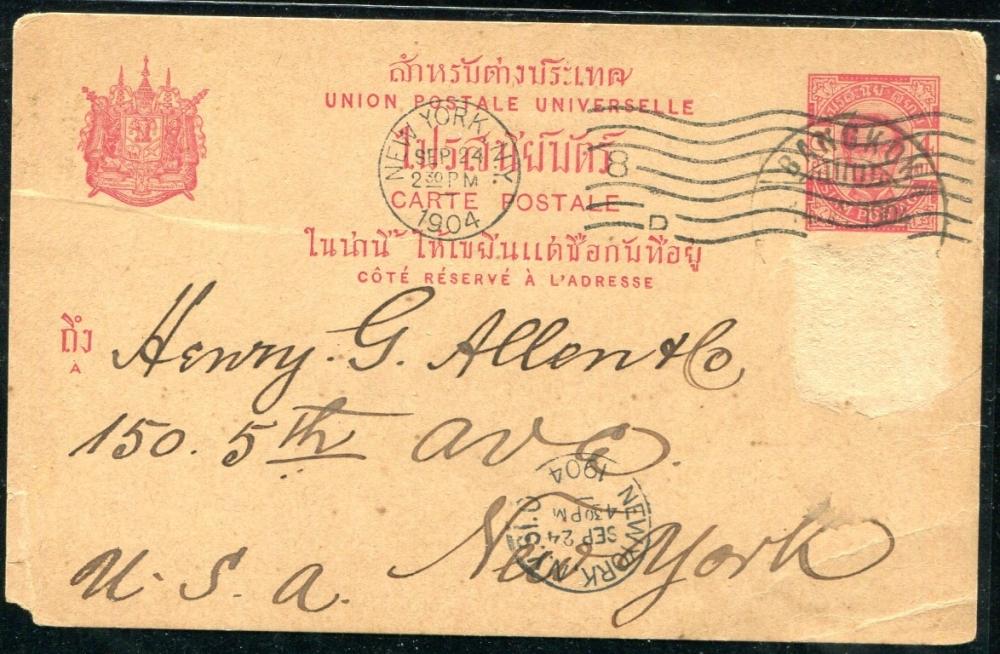 สำหรับต่างประเทศ
UNION POSTALE UNIVERSELLE
ไปรสนียบัตร์
CARTE POSTALE
ในน่านี้ ให้เขียนแต่ชื่อกับที่อยู่
CÔTÉ RÉSERVÉ À L'ADRESSE
NEW YORK, N.Y.
SEP 24
2 30 PM
1904
8
D
BANGKOK
ถึง
A
Henry. G. Allen & Co
150. 5th ave.
New York
U. S. a.
NEW YORK, N.Y.
SEP 24
4 30 PM
1904